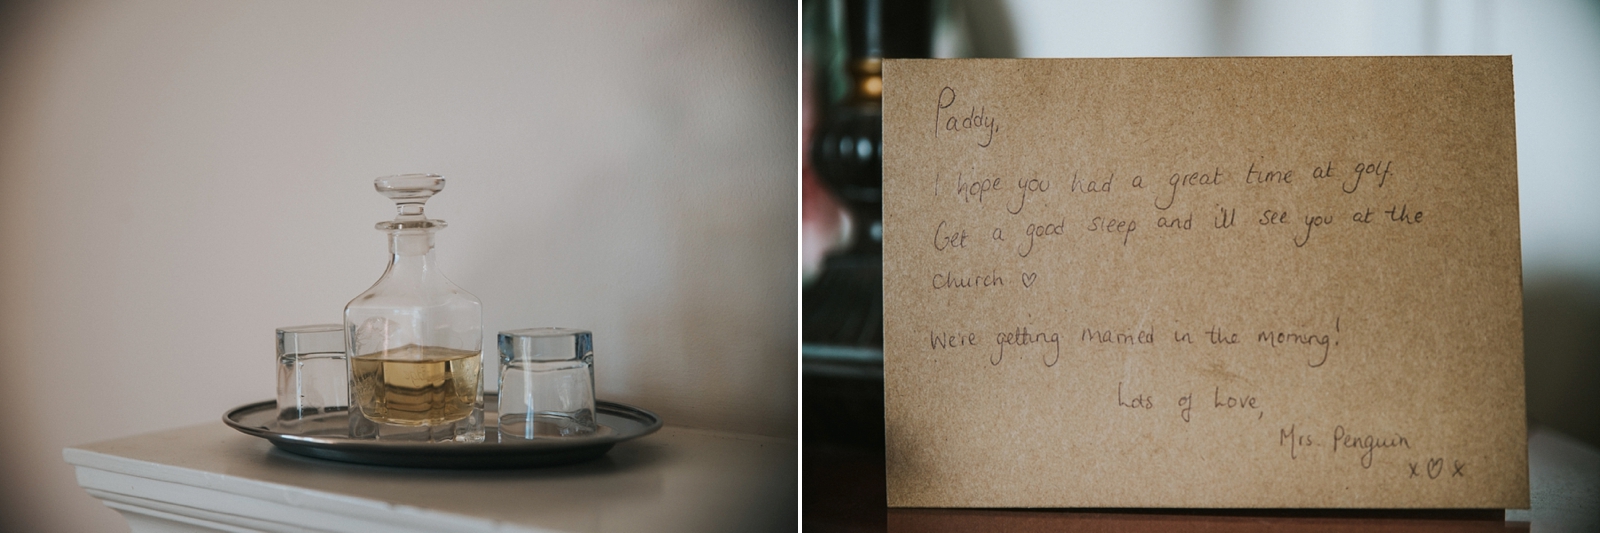 Paddy,
I hope you had a great time at golf.
Get a good sleep and i'll see you at the
church ♡
We're getting married in the morning!
Lots of Love,
Mrs. Penguin
x ♡ x